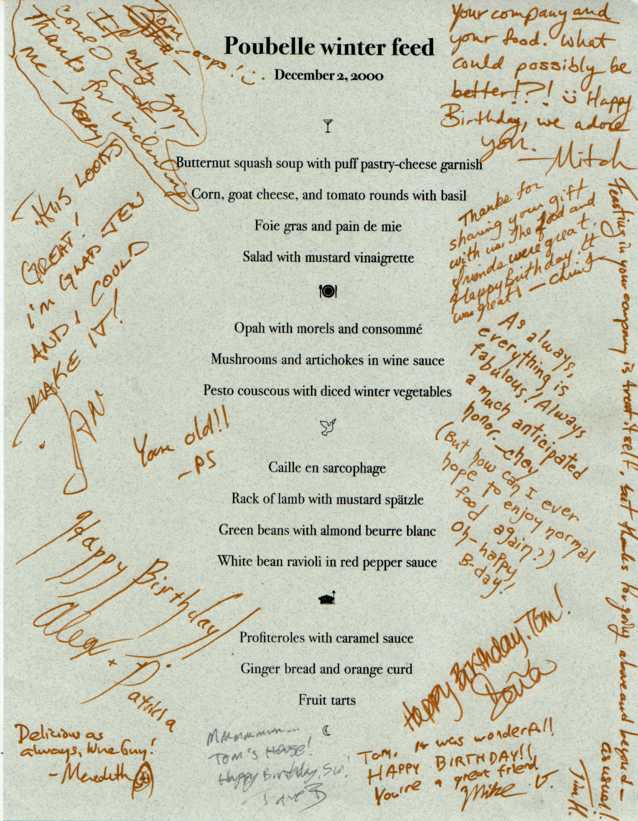 Poubelle winter feed
December 2, 2000
Butternut squash soup with puff pastry-cheese garnish
Corn, goat cheese, and tomato rounds with basil
Foie gras and pain de mie
Salad with mustard vinaigrette
Opah with morels and consommé
Mushrooms and artichokes in wine sauce
Pesto couscous with diced winter vegetables
Caille en sarcophage
Rack of lamb with mustard spätzle
Green beans with almond beurre blanc
White bean ravioli in red pepper sauce
Profiteroles with caramel sauce
Ginger bread and orange curd
Fruit tarts
Tom
oops!
If only you
could code!
Thanks for including
me -
Your company and
your food. What
could possibly be
better!?! Happy
Birthday, we adore
you.
- Mitch
THIS LOOKS
GREAT!
I'M GLAD JEN
AND I COULD
MAKE IT!
IAN
Thanks for
sharing your gift
with us. The food and
friends were great.
Happy Birthday. It
was great! - Chris
As always,
everything is
fabulous! Always
a much anticipated
honor. - chey
(But how can I ever
hope to enjoy normal
food again?)
Oh- happy
B-day!
Feasting in your company is treat itself but thanks for going above and beyond -
as usual!
Tim H.
You're old!!
- PS
Happy Birthday!
Alex + Patricia
Happy Birthday, Tom!
Delicious as
always, Wine Guy!
- Meredith
Mmmmmmm...
Tom's House!
Happy Birthday, Sir!
Dave B
Tom, It was wonderful!
HAPPY BIRTHDAY!!
You're a great friend
Mike V.